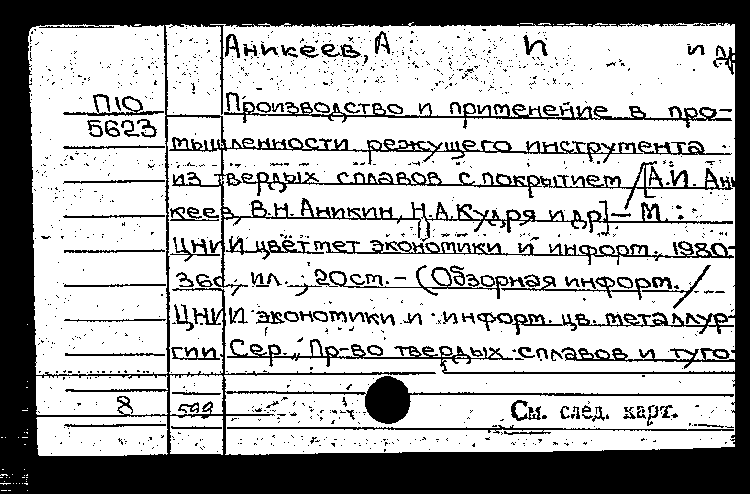 Аникеев, А И и др
П10
5623
Производство и применение в про-
мышленности режущего инструмента
из твердых сплавов с покрытием / [А.И. Ани
кеев, В.Н. Аникин, Н.А. Кудря и др] – М. :
ЦНИИ цветмет экономики и информ., 1980-
36с., ил. ; 20см. – (Обзорная информ. /
ЦНИИ экономики и информ. цв. металлур-
гии. Сер. „Пр-во твердых сплавов и туго-
8 599 См. след. карт.